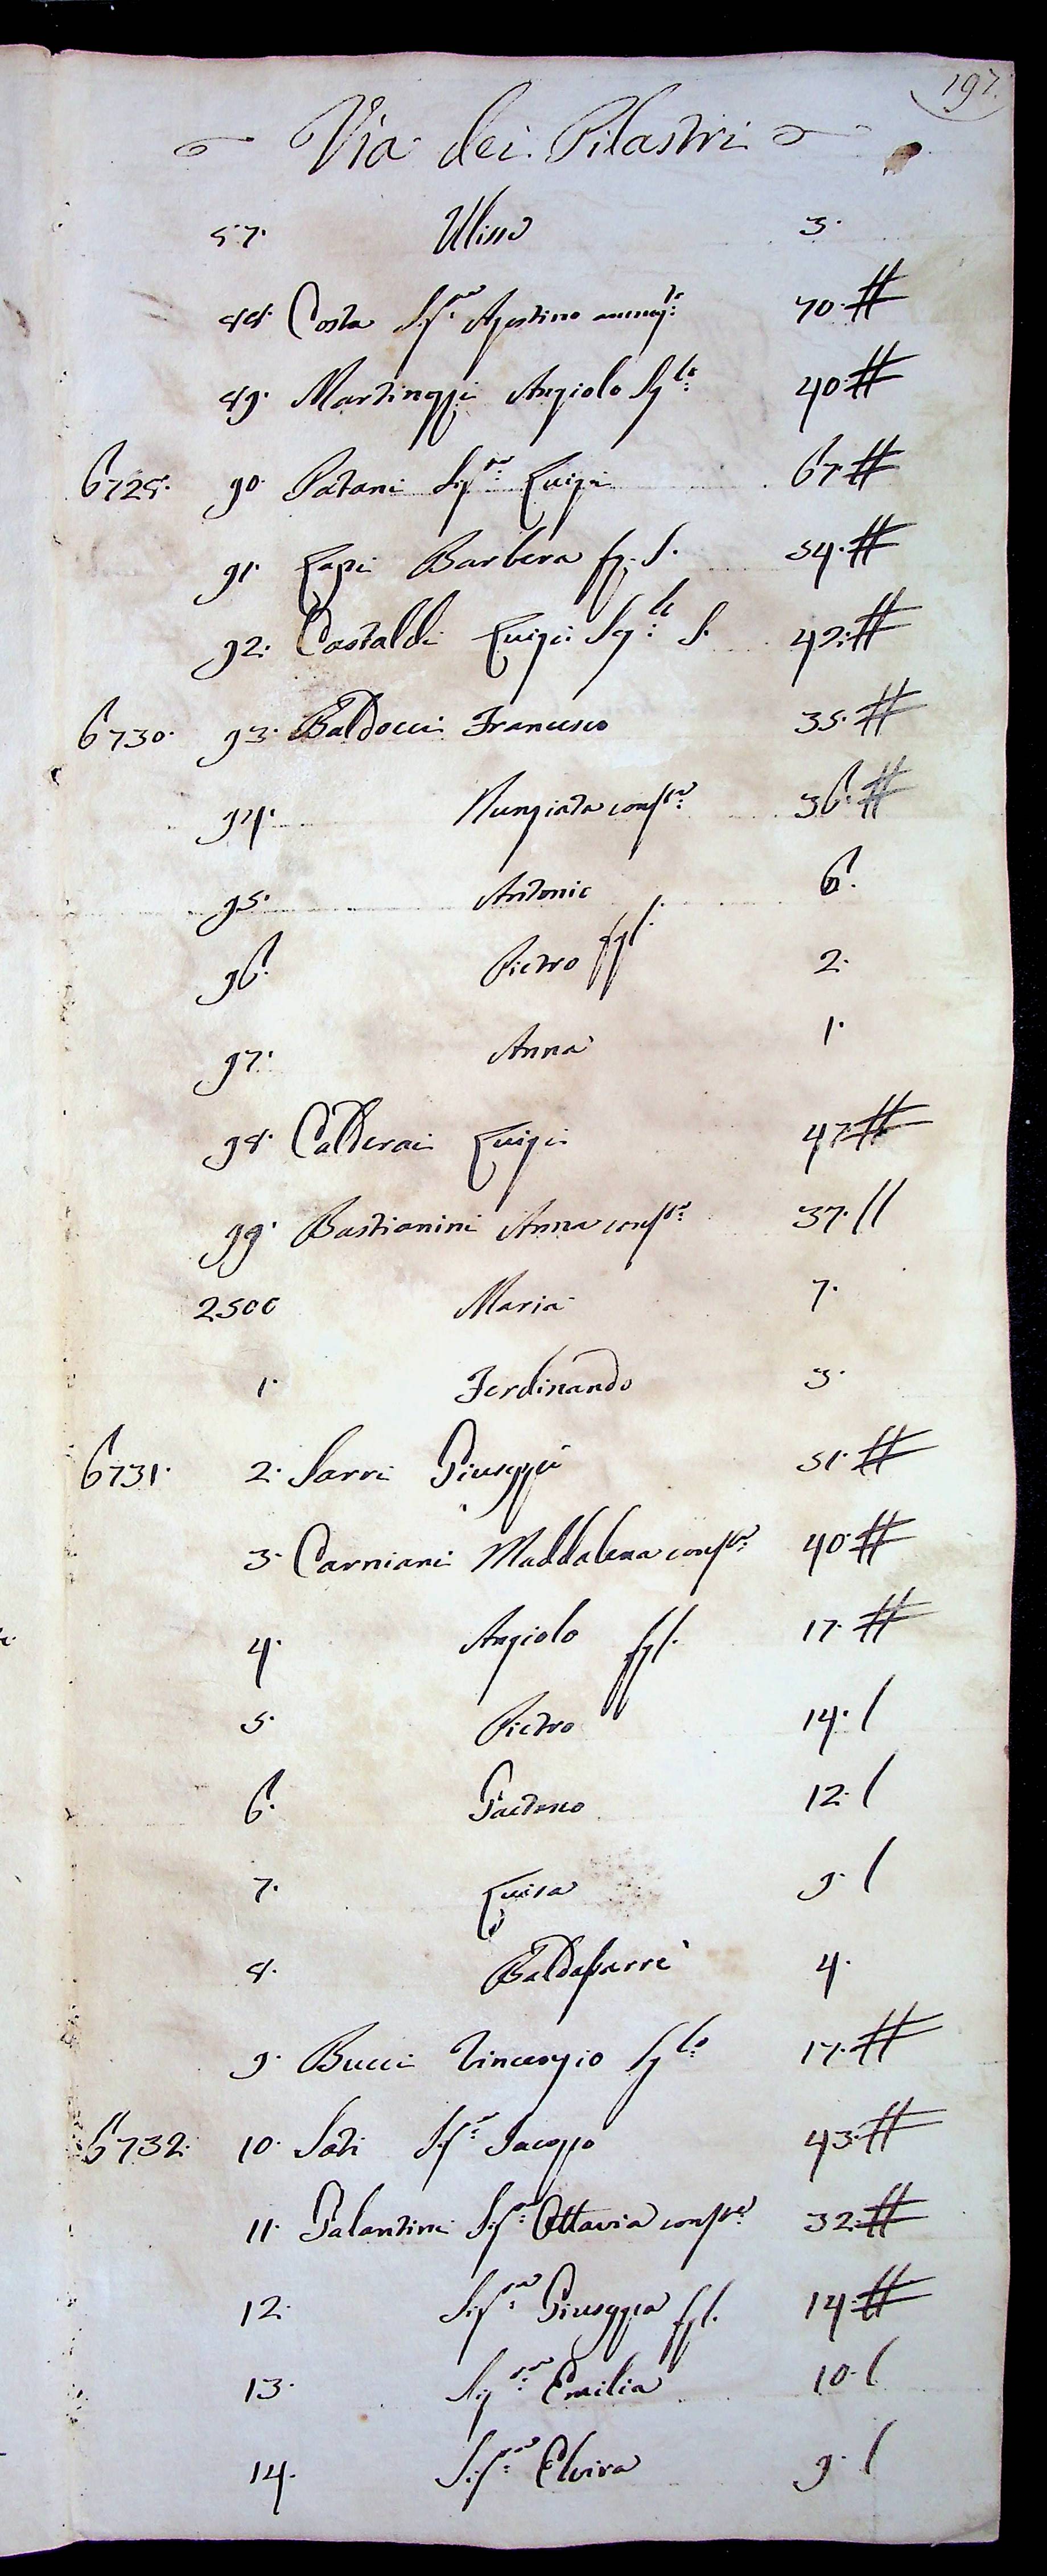 197.
Via dei Pilastri
87. Ulisse 3.
88. Costa Sig.re Agostino ammog:to 70. #
89. Martinozzi Angiolo Sg:lo 40. #
6728. 90. Patani Sig.re Luigi 67. #
91. Lapi Barbera fg. S. 54. #
92. Castaldi Luigi Sg:lo S. 42. #
6730. 93. Baldocci Francesco 35. #
94. Nunziata conf:ta 36. #
95. Antonio 6.
96. Pietro fgl: 2.
97. Anna 1.
98. Calderai Luigi 47. #
99. Bastianini Anna cons:te 37. //
2500 Maria 7.
1. Ferdinando 3.
6731. 2. Sarri Giuseppe 51. #
3. Carniani Maddalena cons:te 40. #
4. Angiolo fgl. 17. #
5. Pietro 14. /
6. Gaetano 12. /
7. Luisa 9. /
8. Baldassarre 4.
9. Bucci Vincenzio Sg:lo 17. #
6732. 10. Sati Sig:re Jacopo 43. #
11. Galantini Sig:ra Ottavia cons:te 32. #
12. Sig:ra Giuseppa fgl. 14. #
13. Sig:ra Emilia 10. /
14. Sig:ra Elvira 9. /